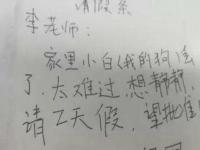 请假条
李老师:
家里小白(我的狗)走
了.太难过,想静静,
请2天假,望批准!